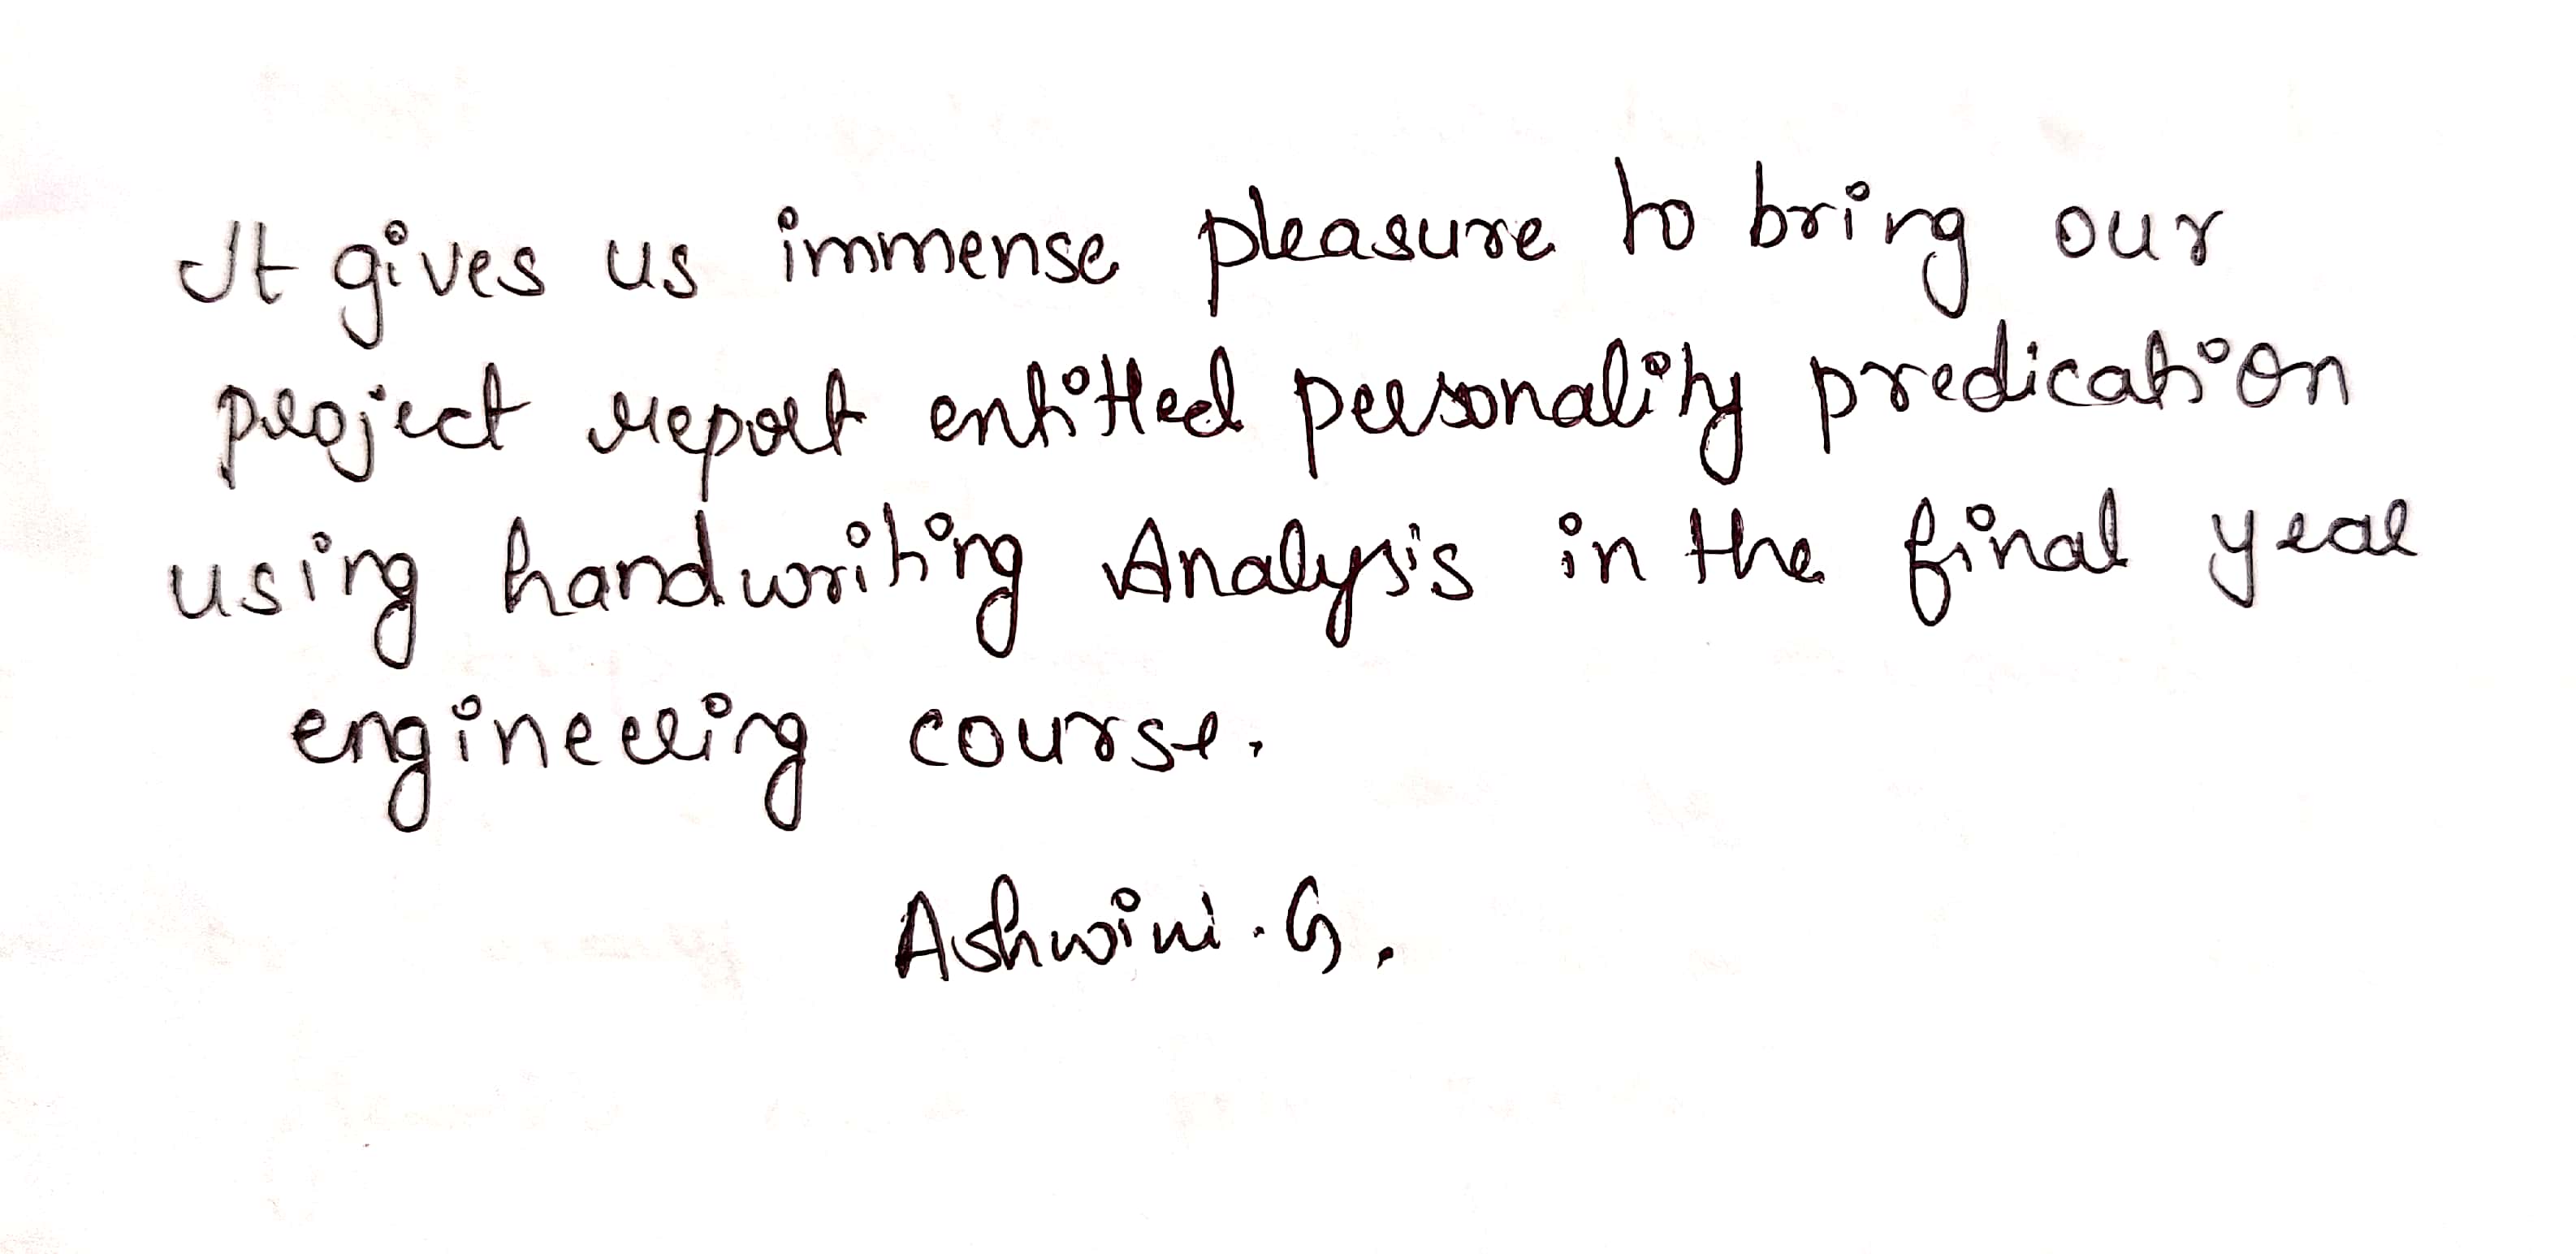 It gives us immense pleasure to bring our
project report entitled personality predication
using handwriting Analysis in the final year
engineering course.
Ashwini. G.